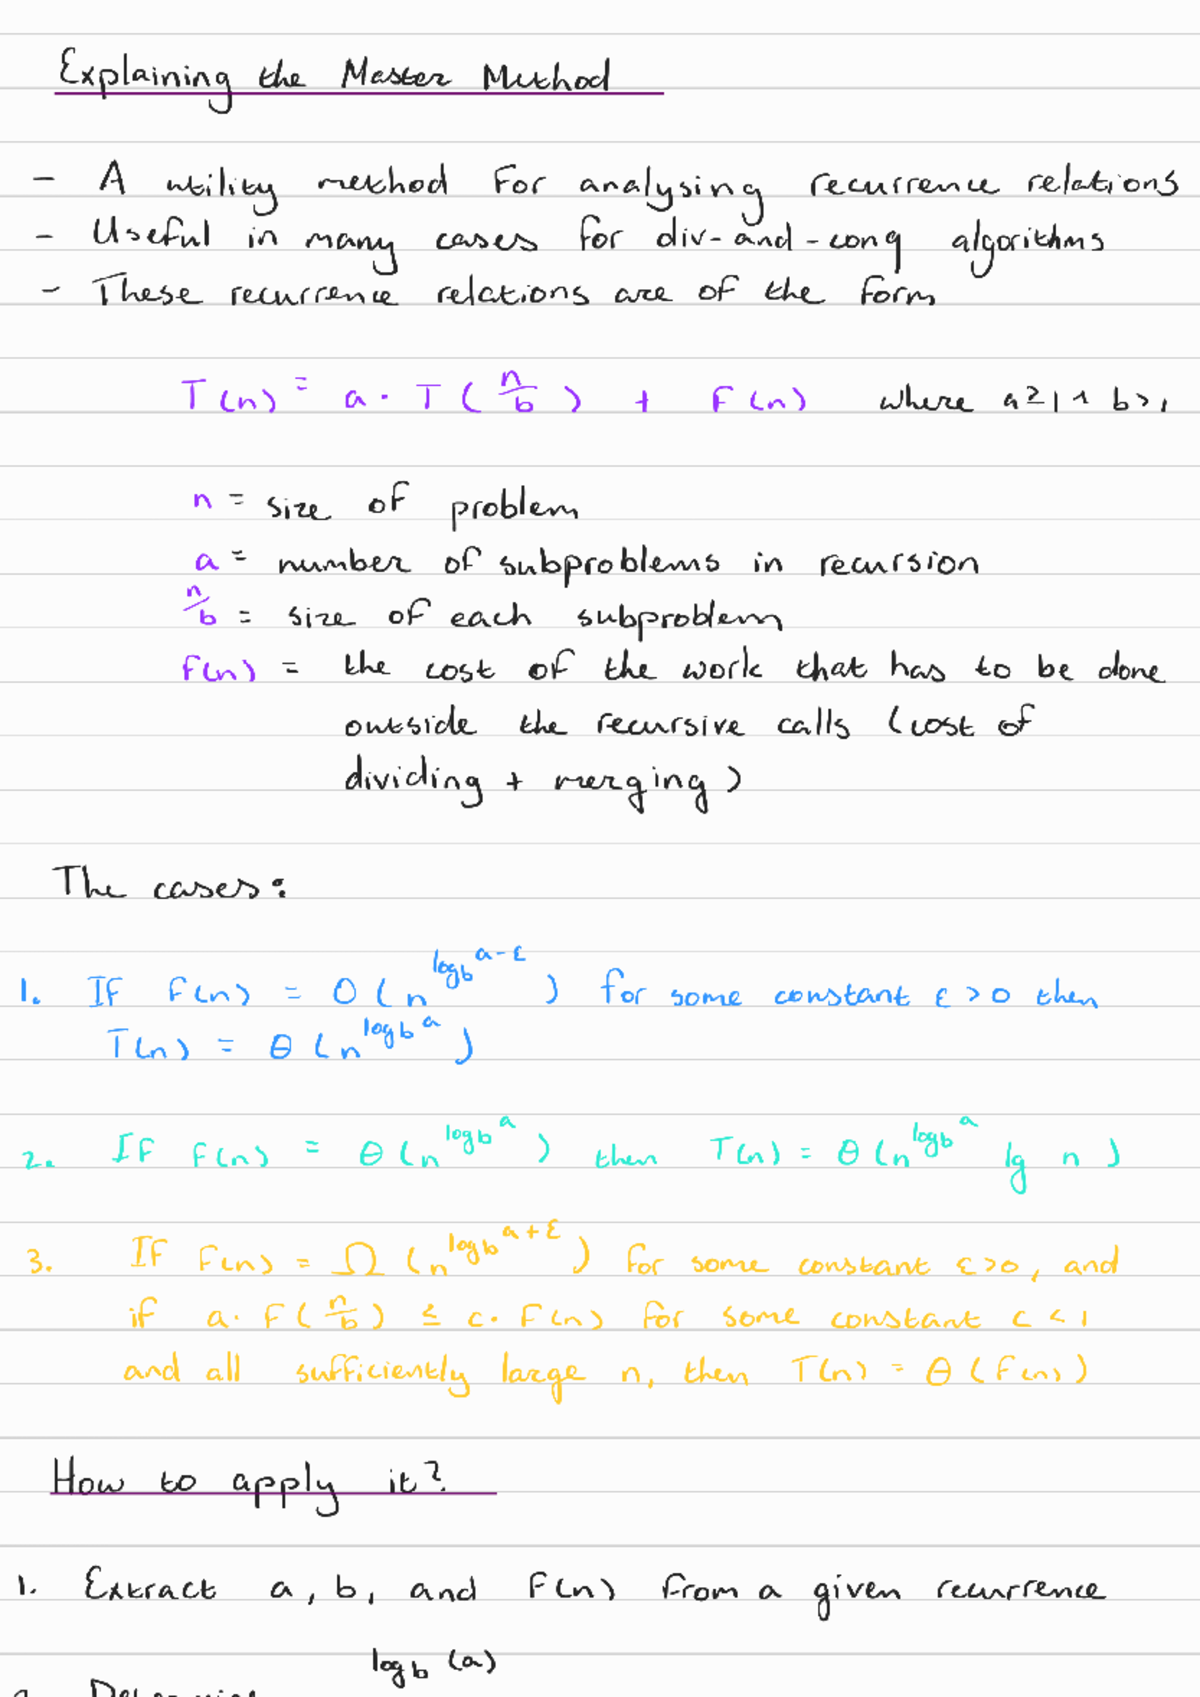 Explaining the Master Method
- A utility method for analysing recurrence relations
- Useful in many cases for div-and-conq algorithms
- These recurrence relations are of the form
T(n) = a · T(n/b) + f(n) where a≥1 ∧ b>1
n = size of problem
a = number of subproblems in recursion
n/b = size of each subproblem
f(n) = the cost of the work that has to be done
outside the recursive calls (cost of
dividing + merging)
The cases:
1. If f(n) = O(n^{log_b a-ε}) for some constant ε>0 then
T(n) = θ(n^{log_b a})
2. If f(n) = θ(n^{log_b a}) then T(n) = θ(n^{log_b a} lg n)
3. If f(n) = Ω(n^{log_b a+ε}) for some constant ε>0, and
if a·f(n/b) ≤ c·f(n) for some constant c<1
and all sufficiently large n, then T(n) = θ(f(n))
How to apply it?
1. Extract a, b, and f(n) from a given recurrence
log_b(a)
2. Determine